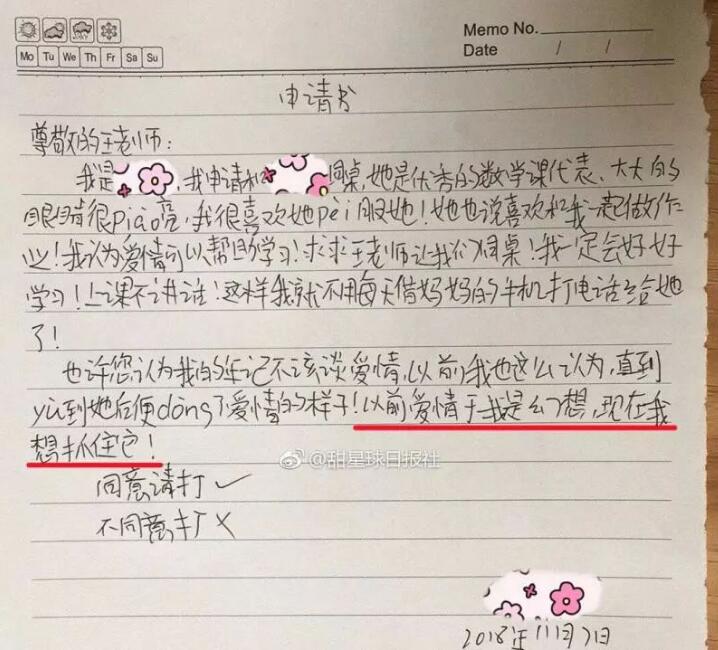 Memo No.
Mo Tu We Th Fr Sa Su
Date / /
申请书
尊敬的王老师：
我是，我申请和同桌，她是优秀的数学课代表、大大的
眼睛很piào亮，我很喜欢她pèi服她！她也说喜欢和我一起做作
业！我认为爱情可以帮助学习！求求王老师让我们同桌！我一定会好好
学习！上课不讲话！这样我就不用每天借妈妈的手机打电话给她
了！
也许您认为我的年记不该谈爱情，以前我也这么认为，直到
yù到她后便dǒng了爱情的样子！以前爱情于我是幻想，现在我
想抓住它！
@甜星球日报社
同意请打✓
不同意打×
2018年11月7日